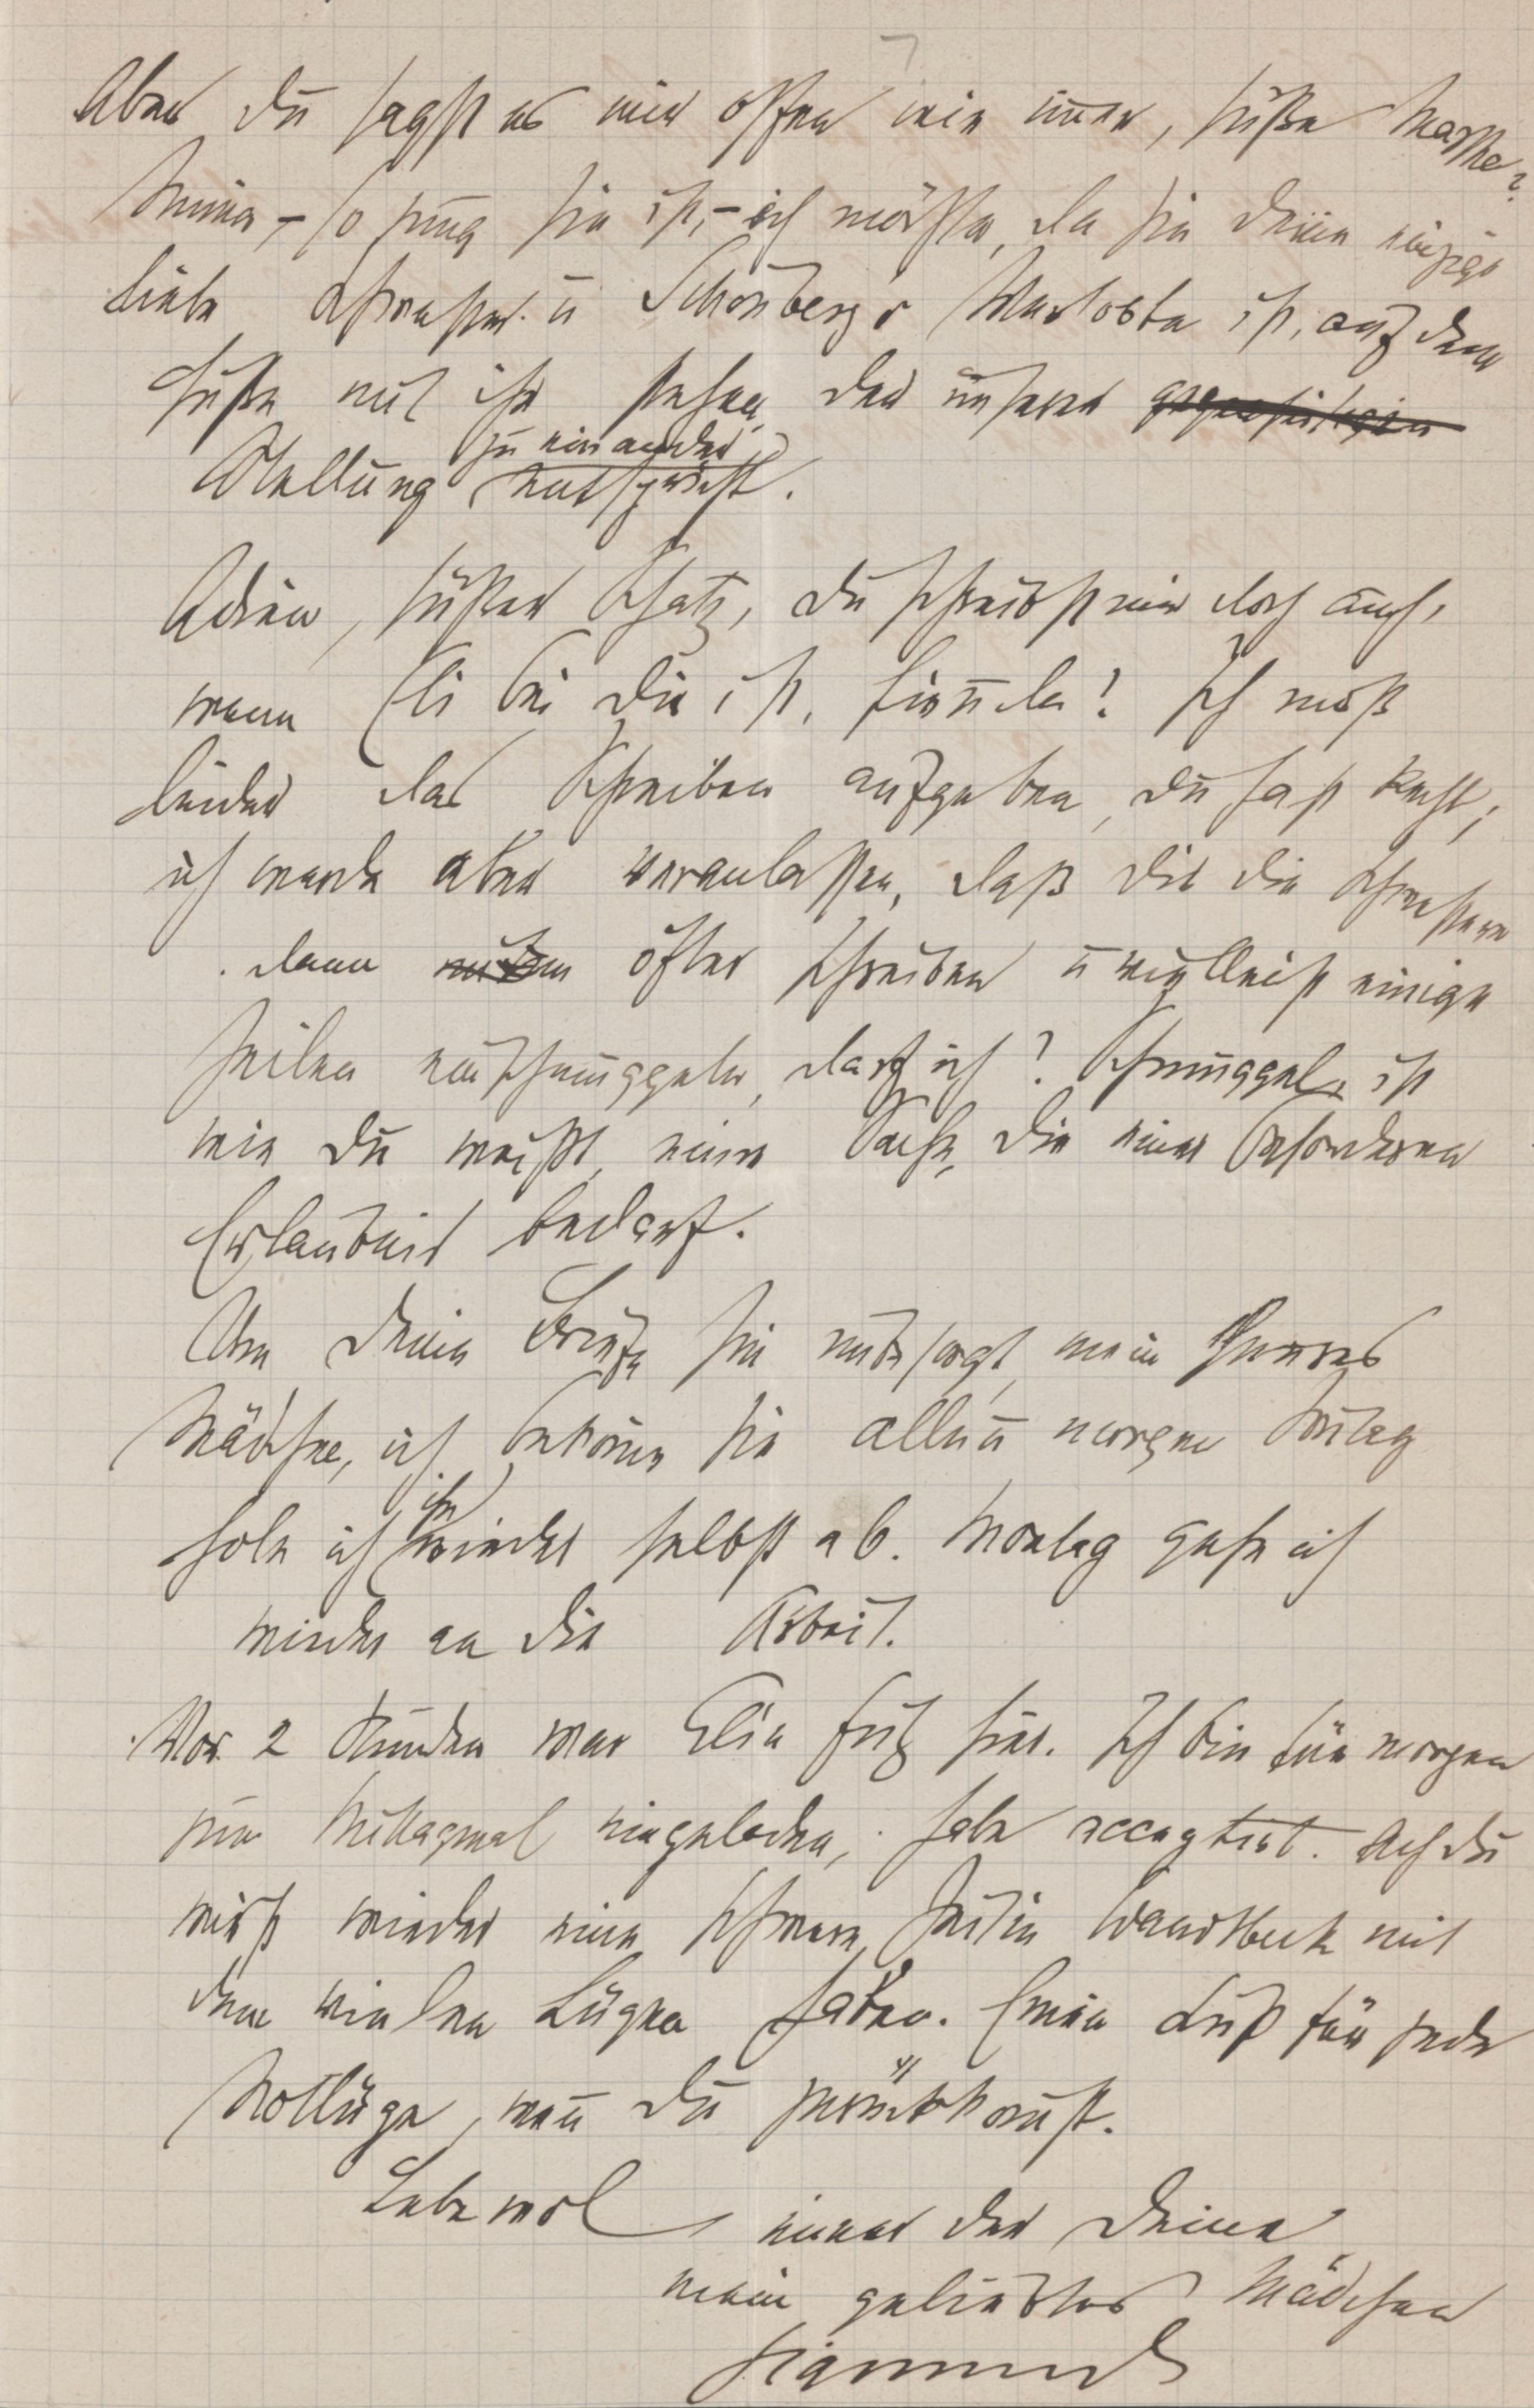 Aber Du sagst es mir offen wie im̄er, süße Marthe?
Minna – so jung sie ist, – ich möchte, da sie Deine einzige
liebe Schwester u Schönberg's Verlobte ist, auf dem
Fuße mit ihr stehen, der unserer gegenseitigen
zu einander
Stellung entspricht.
Adieu, süßer Schatz, Du schreibst mir doch auch,
wenn Eli bei Dir ist. Ich muß
leider das Schreiben aufgeben, Du hast Recht;
ich werde aber veranlassen, daß Dir die Schwestern
dann öfter schreiben u vielleicht einige
Zeilen einschmuggeln, darf ich? Schmuggeln ist
wie Du weißt, eine Sache, die einer besonderen
Erlaubnis bedarf.
Um Deine Briefe sei unbesorgt, mein theures
Mädchen, ich bekom̄e sie alle u morgen Sontag
hole ich ihn wieder selbst ab. Montag gehe ich
wieder an die Arbeit.
Vor 2 Stunden war Elise Fritz hier. Ich bin für morgen
zum Mittagmal eingeladen, habe acceptirt. Ach Du
wirst wieder eine schwere Zeit in Wandsbeck mit
den vielen Lügen haben. Einen Kuß für jede
Notlüge, wen̄ Du zurückkom̄st.
Lebe wol im̄er der Deine
mein geliebtes Mädchen
Sigmund